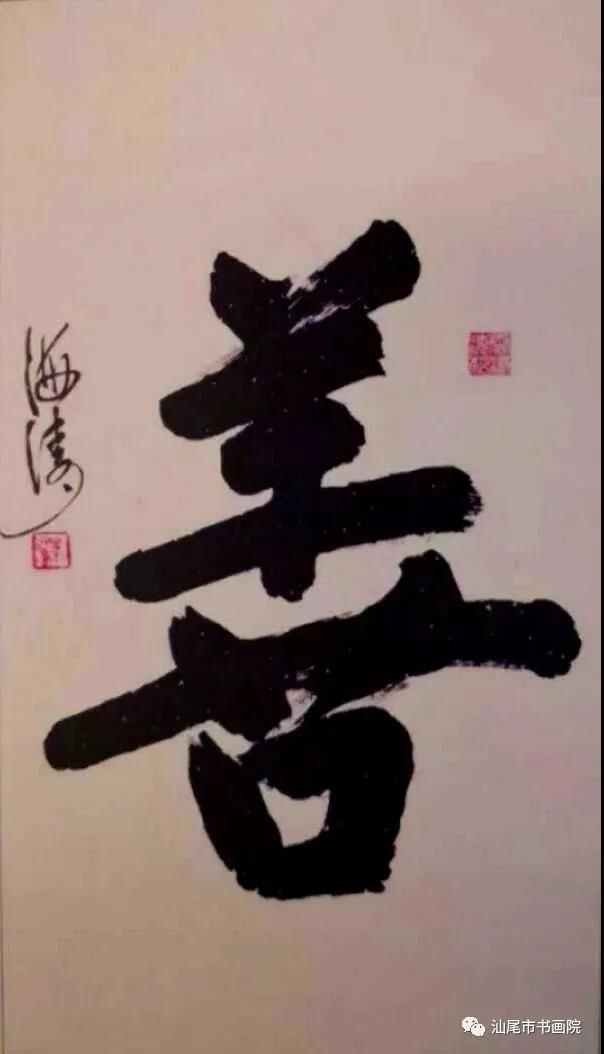 善
海涛
汕尾市书画院